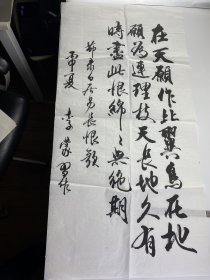 在天願作比翼鳥在地
願為連理枝天長地久有
時盡此恨綿〻無絕期
節录白居易長恨歌
夏
李
作